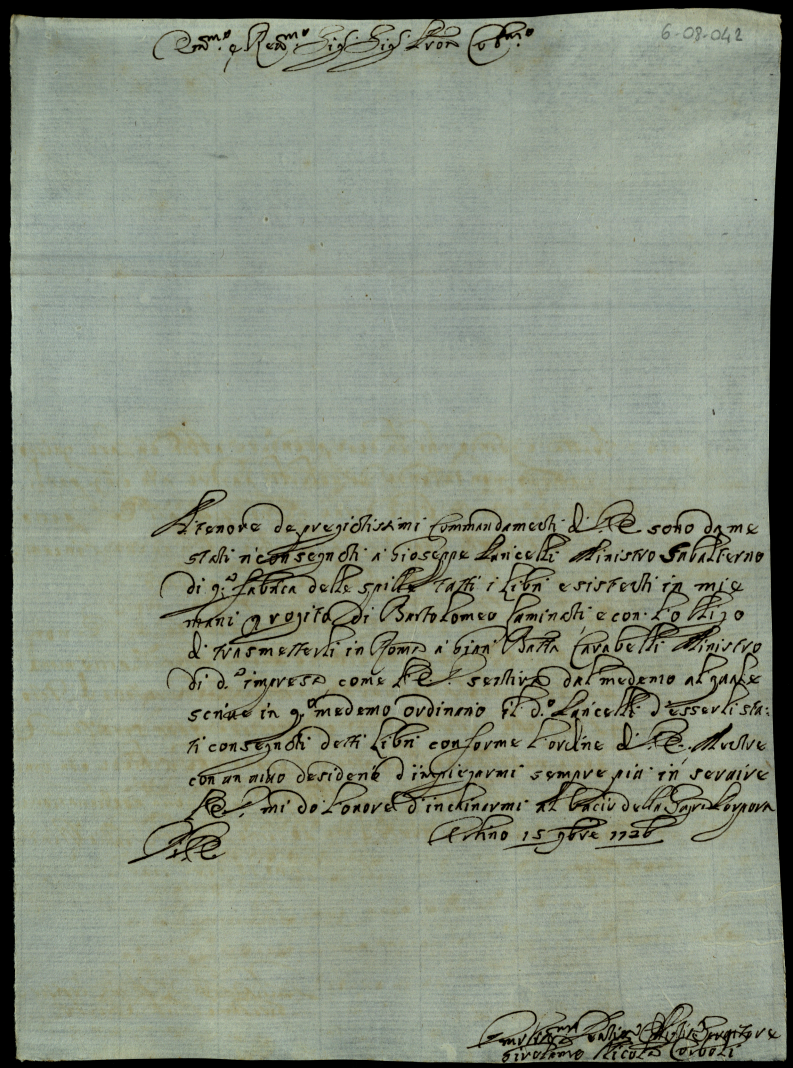 6-08-042
Em.mo e Re.mo Sig.r Sig.r Pron Col.mo
A tenore de pregiatissimi Commandamenti di V.E. sono da me
stati riconsegnati a Gioseppe Lancelli Ministro Subalterno
di q.ta fabrica delle spille tutti i libri esistenti in mie
mani di Bartolomeo Laminati e con l'obligo
di trasmetterli in Roma a Gian Batta Carabelli Ministro
di d.a impresa come V.E. sentirà dal medemo al quale
scrive in q.o medemo ordinario il d.o Lancelli d'esserli sta:
ti consegnati detti libri conforme l'ordine di V.E. Mentre
con un vivo desiderio d'impiegarmi sempre più in servire
V.E. mi do l'onore d'inchinarmi al bacio della Sagra Porpora
Di V.E. Urbino 15 9bre 1726
Servitore
Girolamo Nicola Corboli